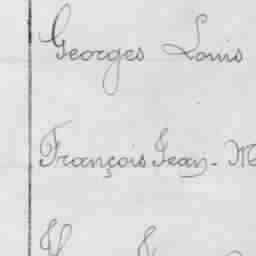 Georges Louis
François Jean-M